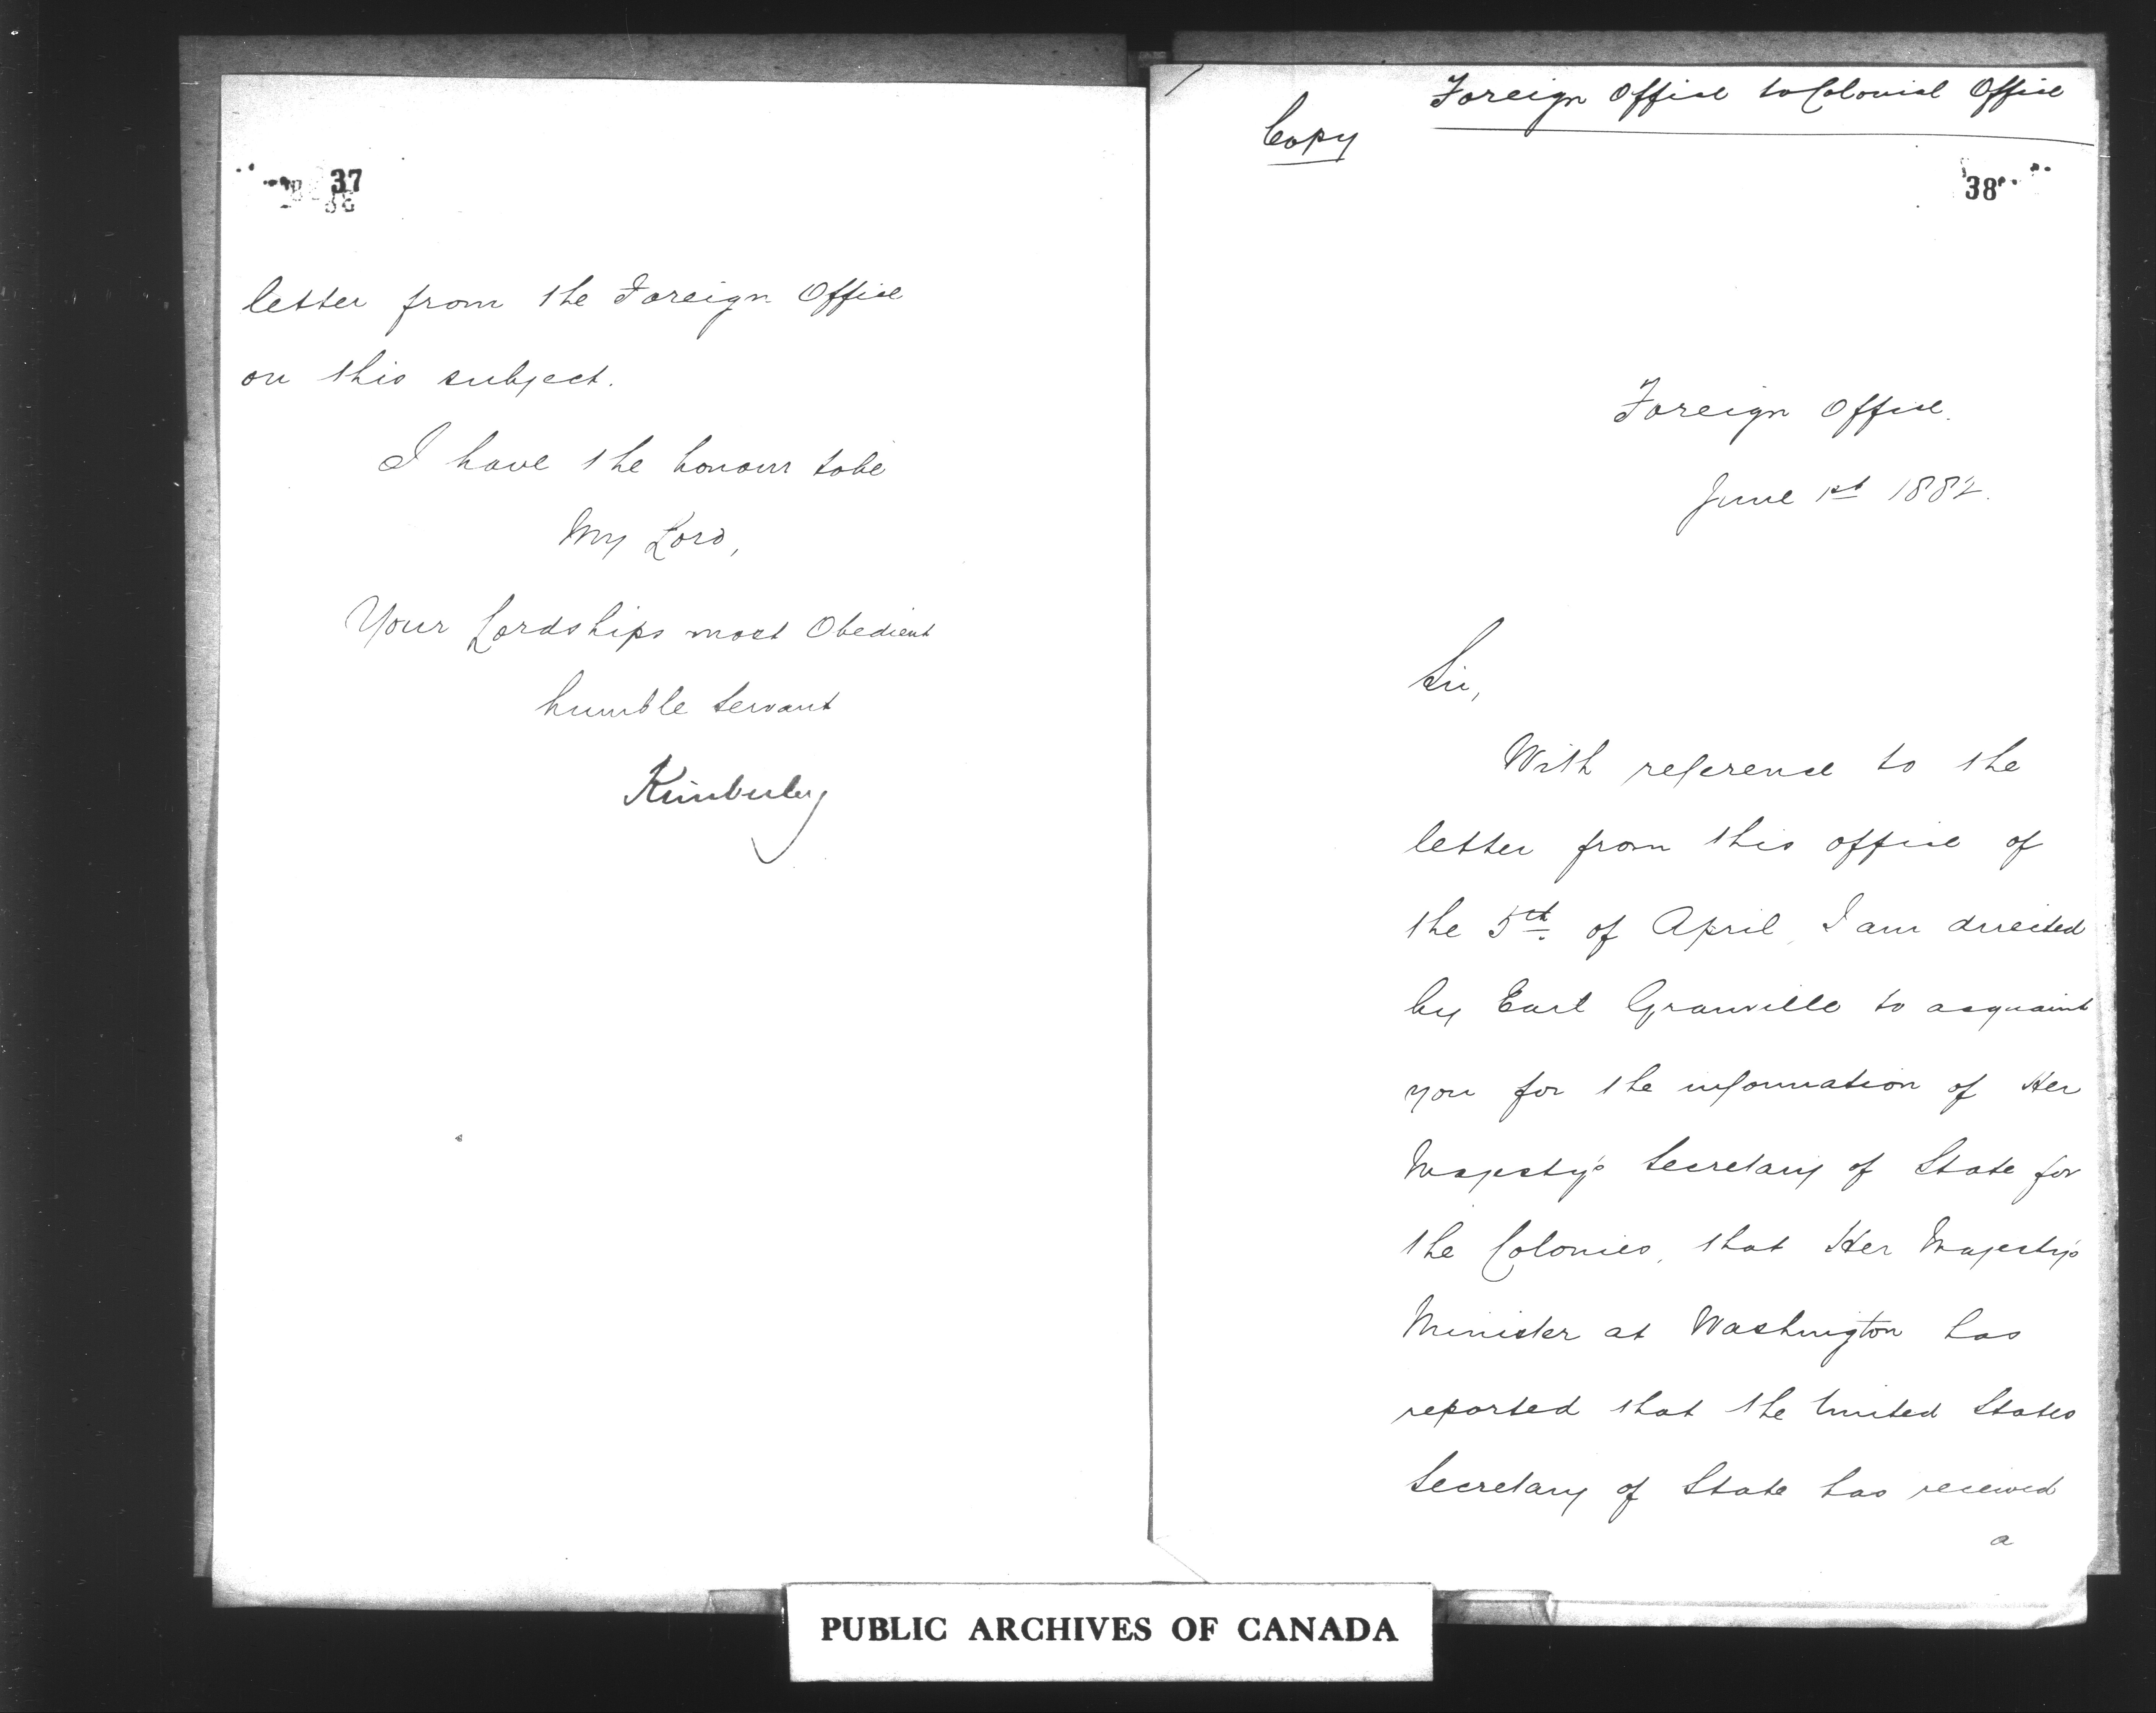 37
letter from the Foreign Office
on this subject.
I have the honour to be
My Lord,
Your Lordships most Obedient
humble servant
Kimberley
Foreign Office to Colonial Office
Copy
38
Foreign Office.
June 1st 1882.
Sir,
With reference to the
letter from this office of
the 5th. of April, I am directed
by Earl Granville to acquaint
you for the information of Her
Majesty's Secretary of State for
the Colonies, that Her Majesty's
Minister at Washington has
reported that the United States
Secretary of State has received
a
PUBLIC ARCHIVES OF CANADA